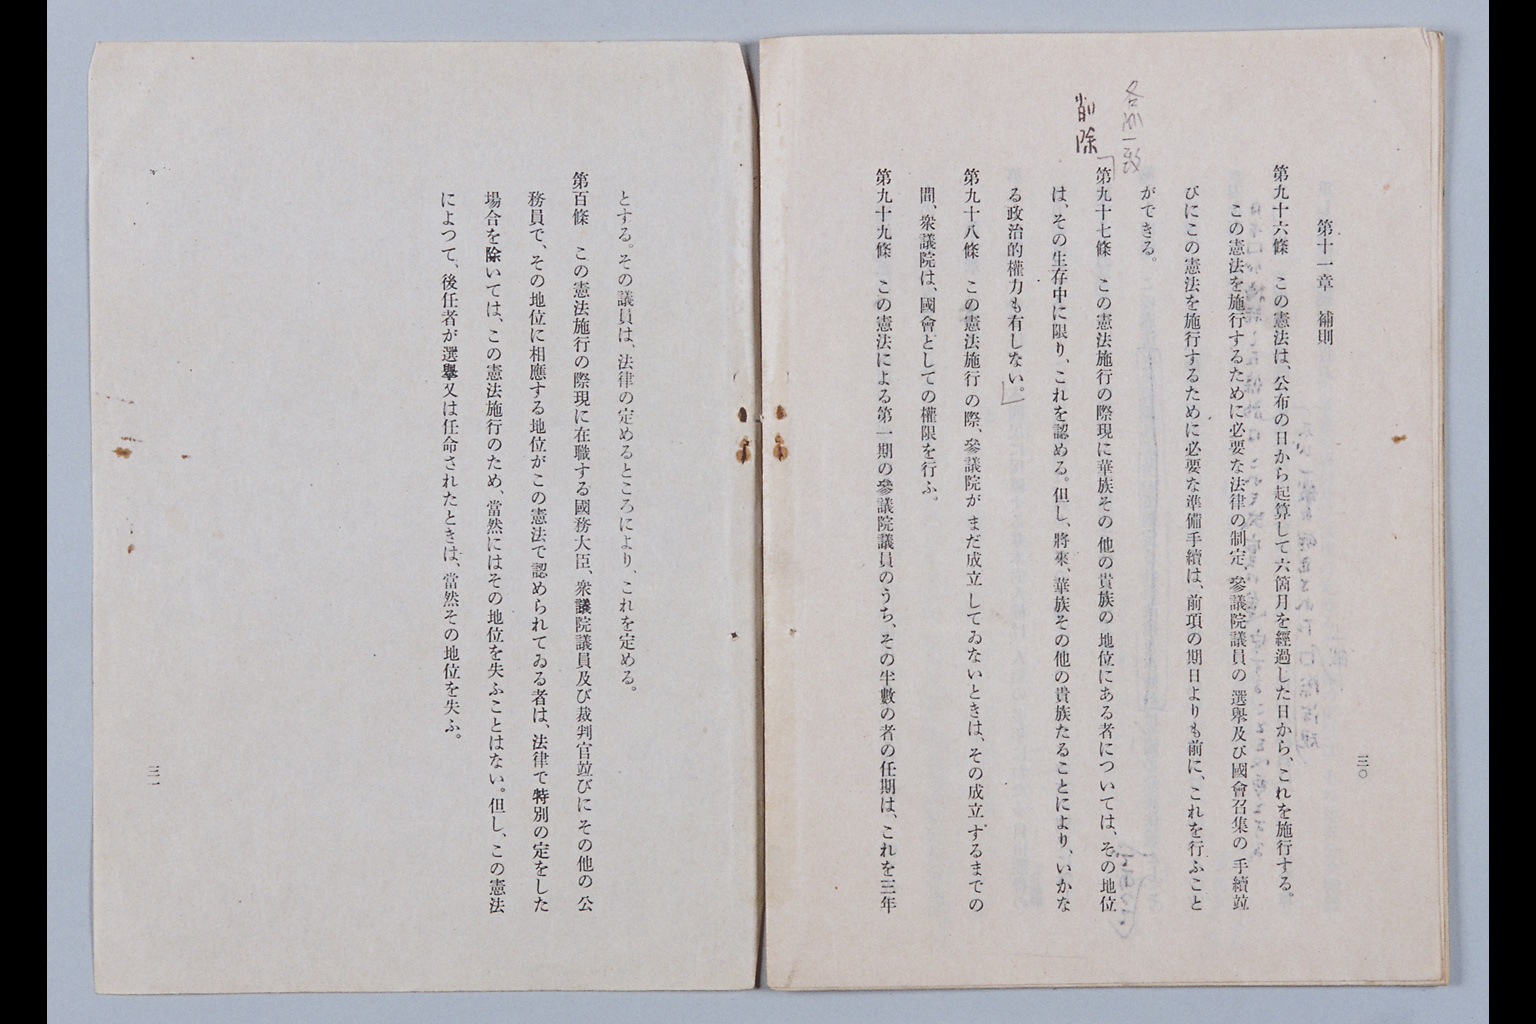 三〇
第十一章　補則
第九十六條　この憲法は、公布の日から起算して六箇月を經過した日から、これを施行する。
この憲法を施行するために必要な法律の制定、參議院議員の選擧及び國會召集の手續竝
びにこの憲法を施行するために必要な準備手續は、前項の期日よりも前に、これを行ふこと
ができる。
各派一致
削除
「第九十七條　この憲法施行の際現に華族その他の貴族の地位にある者については、その地位
は、その生存中に限り、これを認める。但し、將來、華族その他の貴族たることにより、いかな
る政治的權力も有しない。」
第九十八條　この憲法施行の際、參議院がまだ成立してゐないときは、その成立するまでの
間、衆議院は、國會としての權限を行ふ。
第九十九條　この憲法による第一期の參議院議員のうち、その半數の者の任期は、これを三年
とする。その議員は、法律の定めるところにより、これを定める。
第百條　この憲法施行の際現に在職する國務大臣、衆議院議員及び裁判官竝びにその他の公
務員で、その地位に相應する地位がこの憲法で認められてゐる者は、法律で特別の定をした
場合を除いては、この憲法施行のため、當然にはその地位を失ふことはない。但し、この憲法
によつて、後任者が選擧又は任命されたときは、當然その地位を失ふ。
三一